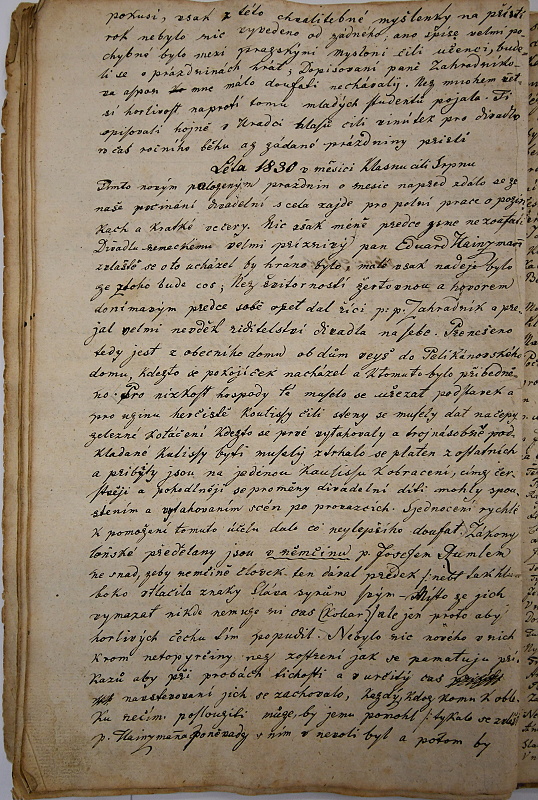 pokusi, vsak z této chvalitebné myslenky na přísti
rok nebylo nic vyvedeno od žádného, ano spíse velmi po
chybné bylo mezi pražskými Mysoni čili učenci, bude
li se o prázdninách hrát; Dopisovaní pané Zahradniko-
va aspon mne málo doufati nechávalý. Než mnohem vět
sí horlivost naproti tomu mladých studentů pojala. Ti
opisovali hojně v Hradci hlasu čili vinůtek pro divadlo
v čas ročního běhu až žádané prázdniny přisti
Léta 1830 v měsíci Klasnu čili Srpnu
Tímto novým položeným prázdnin o mesic napřed zdálo se že
naše počínání divadelní scela zajde pro polni prace o požin
kach a krátké večery. Nic vsak méně předce jsme nezoufali
Divadlu nemeckému velmi přiznivý pan Eduard Hainymann
zvlástě se oto ucházel by hráno bylo, málo vsak naději bylo
že z toho bude cos; Než svitorností žertovnou a hovorem
donímavým předce sobě opet dal říci p: p. Zahradník a pře
jal velmi nevděk řiditelství divadla na sebe. Přeneseno
tedy jest z obecního domu ob dům veyš do Pelikánovského
domu, kdežto se pokojíček nacházel a ktomuto bylo přiběhně
no. Pro nizkost hospody té muselo se uřezat podstavek a
pro uzinu herčistě Koulissy čili steny se musely dat na čepy
železné Kotáčení kdežto se prvé vytahovaly a trojnásobně pod
kladané Kulissy byti musely ztrhalo se platen z ostatních
a přibyty jsou na jednou Kaulissu k obracení, čímž čer-
stvěji a pohodlněji so proměny divadelní díti mohly spou
stením a vytahovaním scén po provazcích. Sjednocení rychlé
k pomožení tomuto účelu dalo co neylepsiho doufat. Zákony
lonské předělany jsou v němčinu p. Josefem Rumlem
ne snad, žeby nemčině človek ten dával předek /: nebť tak hlu
boko vtlačila znaky Sláva synům svým – Místo že jich
vymazat nikdo nemůže ni čas (Kollar) / ale jen proto aby
horlivých čechu tím popudil. Nebylo nic nového v nich
krom netopyrčiny než zostření jak se pamatuju při
kazů aby při probách tichosti a v určitý čas
navstevovaní jich se zachovalo, každý, kdož komu k oble
ku nečím posloužiti může, by jemu pomohl /: tykalo se zvlášt
p. Hainymaňa poněvadž s ním v nevoli byl a potom by